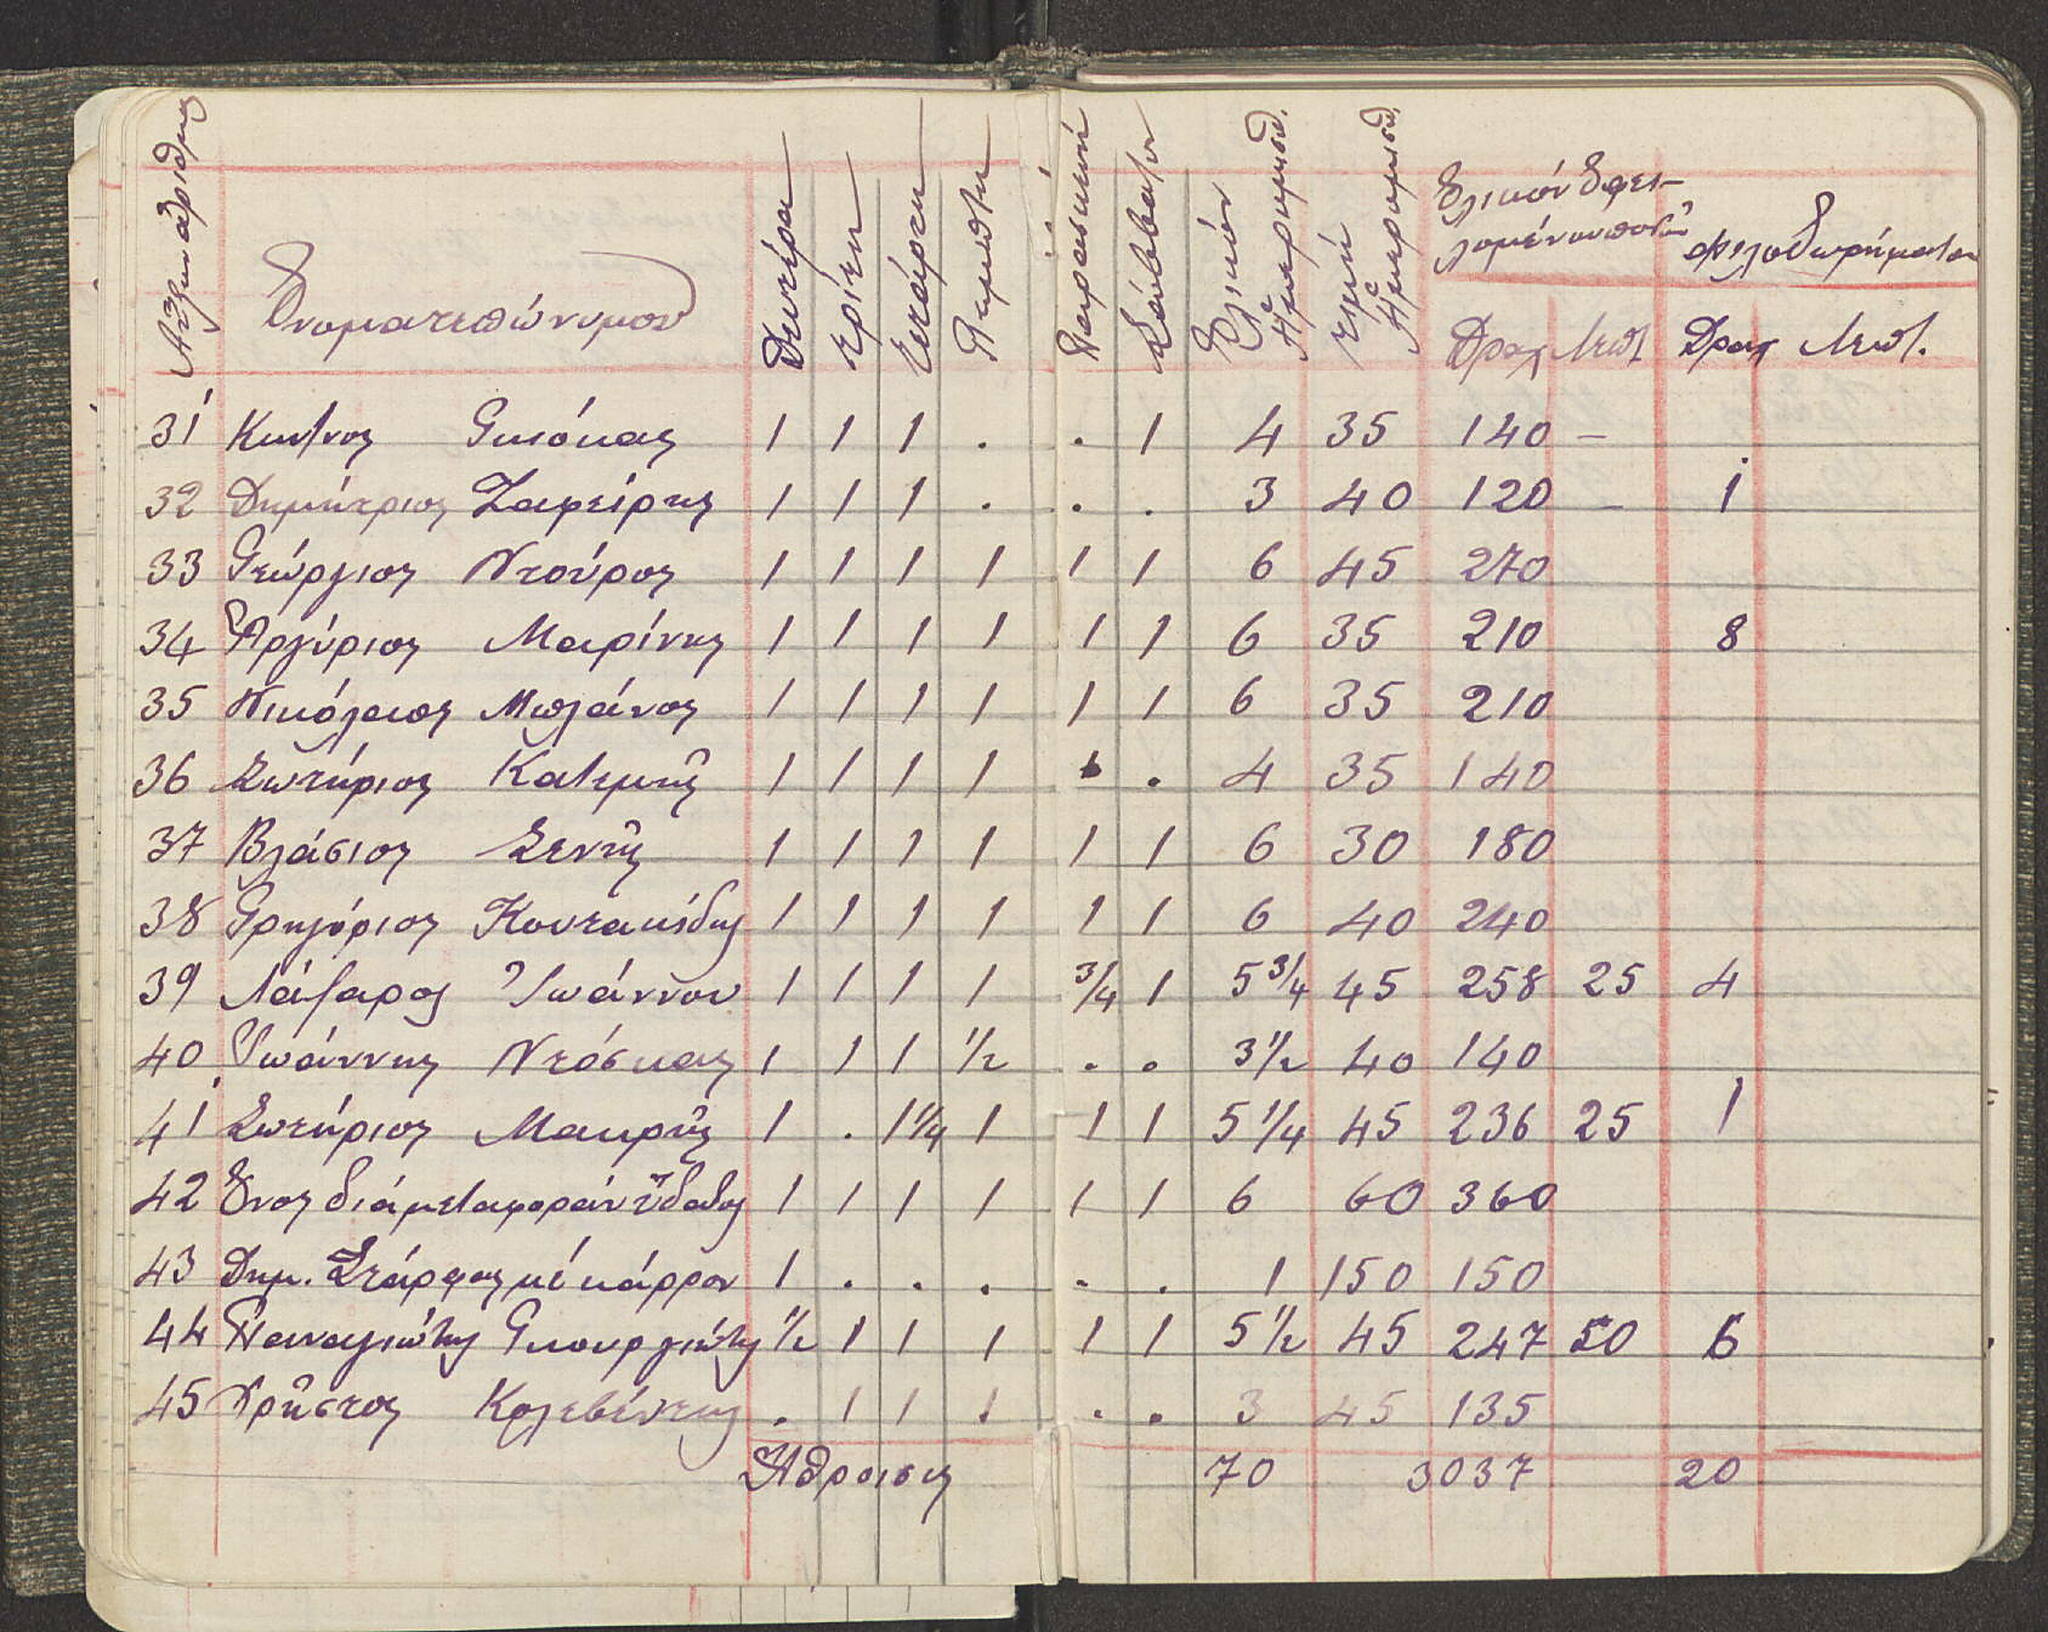 Αὔξων ἀριθμός Ὀνοματεπώνυμον Δευτέρα Τρίτη Τετάρτη Πέμπτη Παρασκευή Σάββατον Ὁλικόν Ἡμερομισθ. Τιμή Ἡμερομισθ. Ὁλικόν Ὀφει-
λομένου ποσοῦ Φιλοδωρήματα
Δραχ Λεπτ Δραχ Λεπτ.
31 Κων/νος Γκιόκας 1 1 1 . . 1 4 35 140 –
32 Δημήτριος Ζαφείρης 1 1 1 . . . 3 40 120 – 1
33 Γεώργιος Ντούρος 1 1 1 1 1 1 6 45 270
34 Ἀργύριος Μαρίνης 1 1 1 1 1 1 6 35 210 8
35 Νικόλαος Μπλάνας 1 1 1 1 1 1 6 35 210
36 Σωτήριος Κατεμῆς 1 1 1 1 . . 4 35 140
37 Βλάσιος Ξενῆς 1 1 1 1 1 1 6 30 180
38 Γρηγόριος Κουτακίδης 1 1 1 1 1 1 6 40 240
39 Λάζαρος Ἰωάννου 1 1 1 1 3/4 1 5 3/4 45 258 25 4
40 Ἰωάννης Ντόσκας 1 1 1 1/2 . . 3 1/2 40 140
41 Σωτήριος Μακρῆς 1 . 1 1/4 1 1 1 5 1/4 45 236 25 1
42 Ὄνος διά μεταφοράν ὕδατος 1 1 1 1 1 1 6 60 360
43 Δημ. Στάρφας μέ κάρρον 1 . . . . . 1 150 150
44 Παναγιώτης Γκουργιώτης 1/2 1 1 1 1 1 5 1/2 45 247 50 6
45 Χρῆστος Κολεβέντης . 1 1 1 . . 3 45 135
Ἄθροισις 70 3037 20